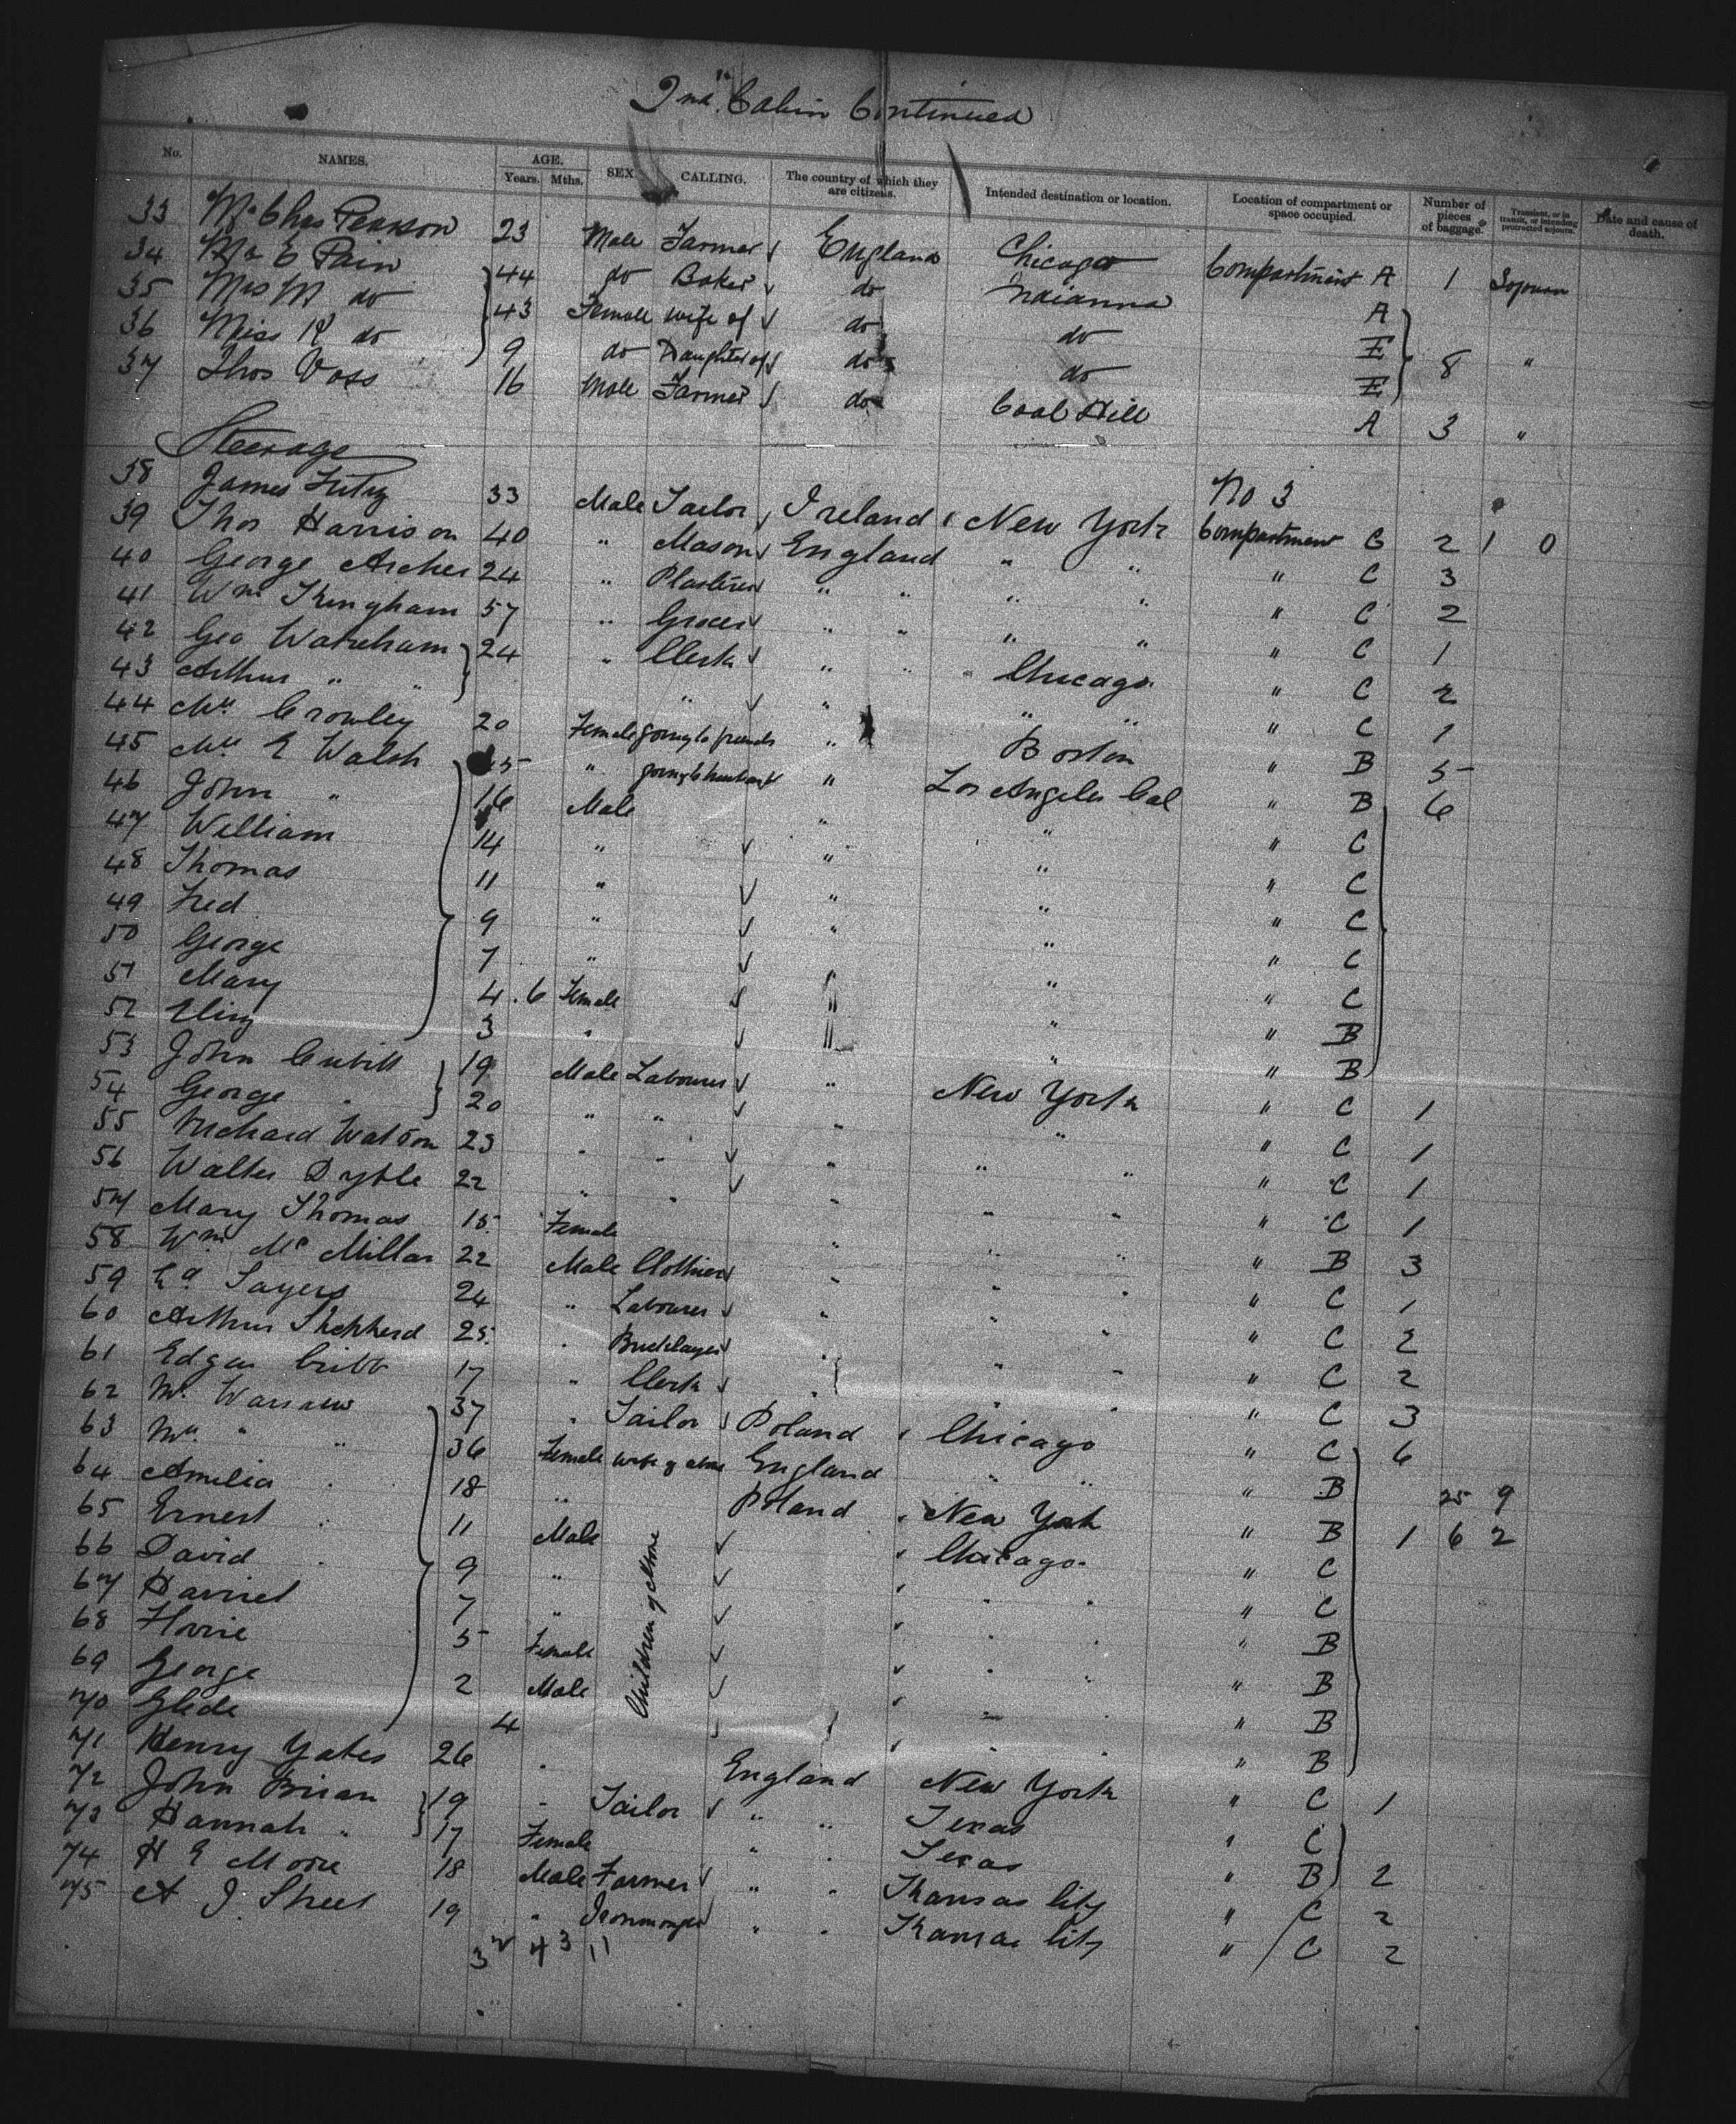 2nd Cabin Continued
No. NAMES. AGE. Years. Mths. SEX. CALLING. The country of which they are citizens. Intended destination or location. Location of compartment or space occupied. Number of pieces of baggage. Transient, or in transit, or intending protracted sojourn. Date and cause of death.
33 Mr Chas Pearson 23 Male Farmer England Chicago Compartment A 1 Sojourn
34 Mr E Pain 44 do Baker do Indianna A
35 Mrs M do 43 Female Wife of do do E
36 Miss K do 9 do Daughter of do do E 8 "
37 Thos Voss 16 Male Farmer do Coal Hill A 3 "
Steerage
No 3
38 James 33 Male Tailor Ireland New York Compartment C 2 1 0
39 Thos Harrison 40 " Mason England " " " C 3
40 George Archer 24 " Plasterer " " " " " C 2
41 Wm Kingham 57 " Grocer " " " " " C 1
42 Geo Wareham 24 " Clerk " " Chicago " C 2
43 Arthur " " " " " " " C 1
44 Mrs Crowley 20 Female going to friends " Boston " B 5
45 Mrs E Walsh 35 " going to husband " Los Angeles Cal " B 6
46 John " 16 Male " " " C
47 William 14 " " " " C
48 Thomas 11 " " " " C
49 Fred 9 " " " " C
50 George 7 " " " " C
51 Mary 4 . 6 Female " " " B
52 3 " " " " B
53 John Cubitt 19 Male Labourer " New York " C 1
54 George " 20 " " " " " C 1
55 Richard Watson 23 " " " " " " C 1
56 Walter Dyble 22 " " " " " " C 1
57 Mary Thomas 15 Female " " " " B 3
58 Wm McMillan 22 Male Clothier " " " " C 1
59 Ed Sayers 24 " Labourer " " " " C 2
60 Arthur Shepherd 25 " Bricklayer " " " " C 2
61 Edgar Cribb 17 " Clerk " " " " C 3
62 Mr Warsaw 37 " Tailor Poland Chicago " C 6
63 Mrs " " 36 Female wife of above England " " " B
64 Amelia " 18 " Poland New York " B 1
25 9
6 2
65 Ernest " 11 Male Chicago " C
66 David " 9 " " " " C
67 Harriet 7 " " " " B
68 5 Female " " " B
69 George 2 Male " " " B
70 4 " " " B
Children of Above
71 Henry Yates 26 " England New York " C 1
72 John Brian 19 " Tailor " " Texas " C
73 Hannah " 17 Female " " Texas " B 2
74 H E Moore 18 Male Farmer " " Kansas City " C 2
75 A J Street 19 " Ironmonger " " Kansas City " C 2
32 43 11